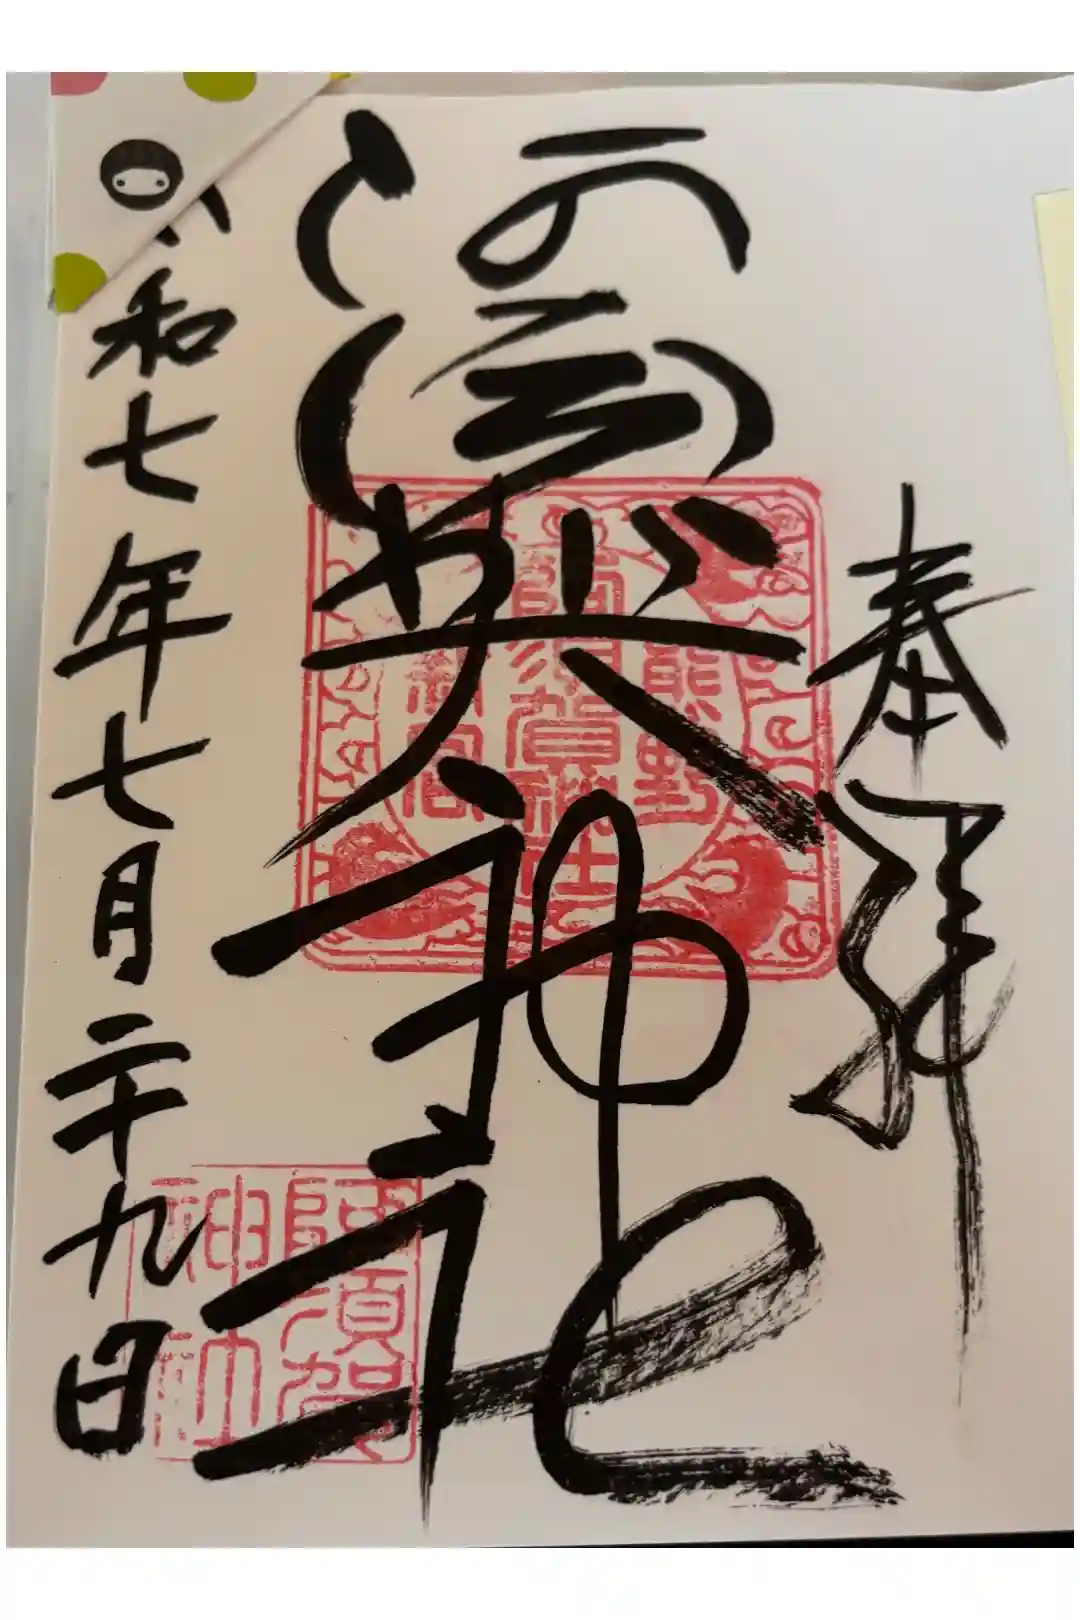 奉拝
阿須賀神社
熊野
阿須賀神社
新宮
阿須賀
神社
和七年七月二十九日